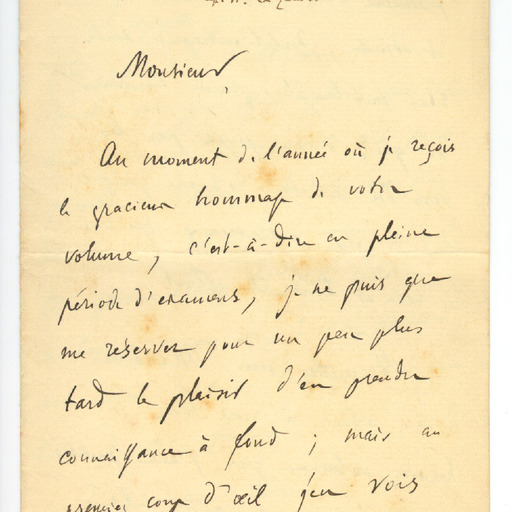 Monsieur,
Au moment de l'année où je reçois
le gracieux hommage de votre
volume, c'est-à-dire en pleine
période d'examens, je ne puis que
me réserver pour un peu plus
tard le plaisir d'en prendre
connaissance à fond ; mais au
premier coup d'œil j'en vois